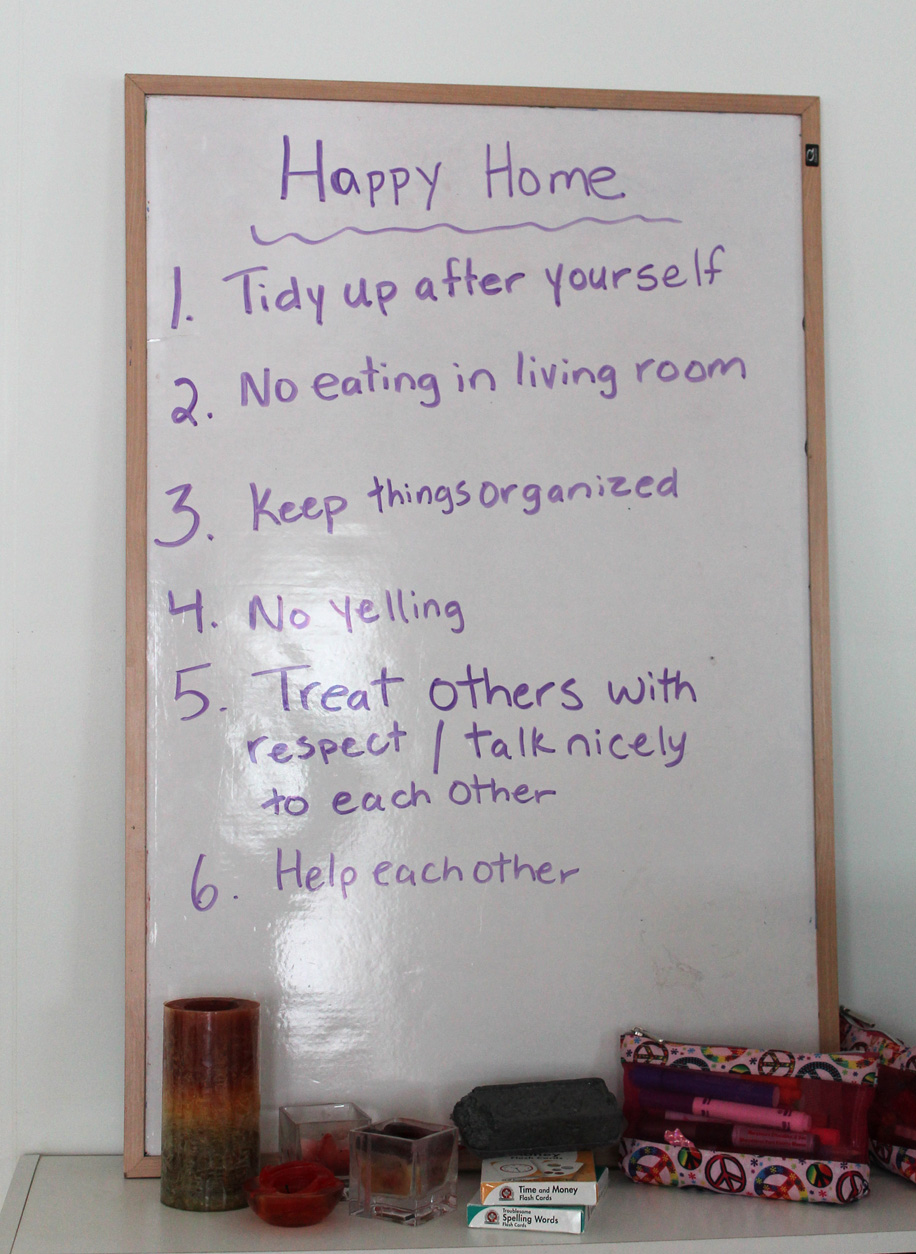 Happy Home
1. Tidy up after yourself
2. No eating in living room
3. Keep things organized
4. No yelling
5. Treat others with
respect / talk nicely
to each other
6. Help each other
Time and Money
Flash Cards
Troublesome
Spelling Words
Flash Cards